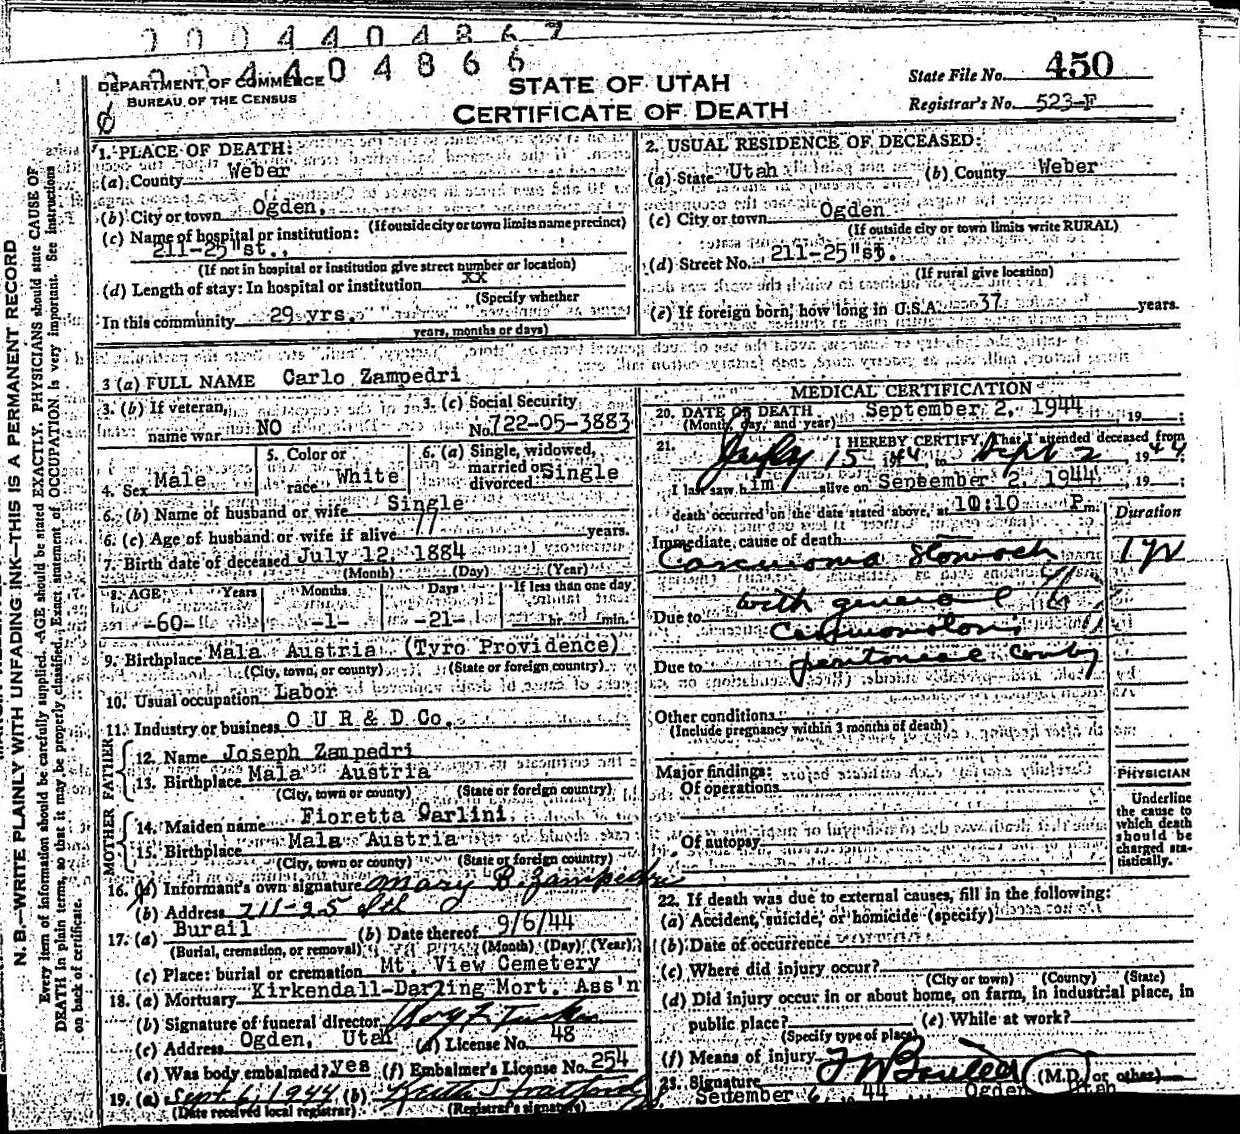 0004404867
0004404866
DEPARTMENT OF COMMERCE
BUREAU OF THE CENSUS
STATE OF UTAH
CERTIFICATE OF DEATH
State File No. 450
Registrar's No. 523-F
N. B.—WRITE PLAINLY WITH UNFADING INK—THIS IS A PERMANENT RECORD
Every item of information should be carefully supplied. AGE should be stated EXACTLY. PHYSICIANS should state CAUSE OF
DEATH in plain terms, so that it may be properly classified. Exact statement of OCCUPATION is very important. See instructions
on back of certificate.
1. PLACE OF DEATH:
(a) County Weber
(b) City or town Ogden,
(If outside city or town limits name precinct)
(c) Name of hospital or institution:
211-25"st.,
(If not in hospital or institution give street number or location)
(d) Length of stay: In hospital or institution xx
(Specify whether
In this community 29 yrs.
years, months or days)
2. USUAL RESIDENCE OF DECEASED:
(a) State Utah (b) County Weber
(c) City or town Ogden
(If outside city or town limits write RURAL)
(d) Street No. 211-25"st.
(If rural give location)
(e) If foreign born, how long in U.S.A. 37 years.
3 (a) FULL NAME Carlo Zampedri
3. (b) If veteran, name war NO
3. (c) Social Security No. 722-05-3883
4. Sex Male
5. Color or race White
6. (a) Single, widowed, married or divorced Single
6. (b) Name of husband or wife Single
6. (c) Age of husband or wife if alive " years.
7. Birth date of deceased July 12, 1884
(Month) (Day) (Year)
8. AGE Years Months Days If less than one day
-60- -1- -21- hr. min.
9. Birthplace Mala Austria (Tyro Providence)
(City, town, or county) (State or foreign country)
10. Usual occupation Labor
11. Industry or business O U R & D Co.
FATHER
12. Name Joseph Zampedri
13. Birthplace Mala Austria
(City, town or county) (State or foreign country)
MOTHER
14. Maiden name Fioretta Carlini
15. Birthplace Mala Austria
(City, town or county) (State or foreign country)
16. (a) Informant's own signature Mary B. Zampedri
(b) Address 211-25 Sth
17. (a) Burail (b) Date thereof 9/6/44
(Burial, cremation, or removal) (Month) (Day) (Year)
(c) Place: burial or cremation Mt. View Cemetery
18. (a) Mortuary Kirkendall-Darling Mort. Ass'n
(b) Signature of funeral director Roy F. Tucker
(c) Address Ogden, Utah (d) License No. 48
(e) Was body embalmed? yes (f) Embalmer's License No. 254
19. (a) Sept 6, 1944 (b)
(Date received local registrar) (Registrar's signature)
MEDICAL CERTIFICATION
20. DATE OF DEATH September 2, 1944 19 ;
(Month, day, and year)
21. I HEREBY CERTIFY, That I attended deceased from
July 15 1944, to Sept 2 1944
I last saw him alive on September 2, 1944, 19 ;
death occurred on the date stated above, at 10:10 P m.
Duration
Immediate cause of death
Carcinoma Stomach 1 yr
with general
Due to
carcinomatosis
Due to peritoneal cavity
Other conditions
(Include pregnancy within 3 months of death)
Major findings:
Of operations
Of autopsy
PHYSICIAN
Underline
the cause to
which death
should be
charged sta-
tistically.
22. If death was due to external causes, fill in the following:
(a) Accident, suicide, or homicide (specify)
(b) Date of occurrence
(c) Where did injury occur?
(City or town) (County) (State)
(d) Did injury occur in or about home, on farm, in industrial place, in
public place? (e) While at work?
(Specify type of place)
(f) Means of injury
23. Signature (M.D. or other)
September 6, 19 44 Ogden Utah